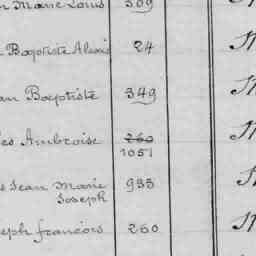 n Marie Louis 309
Baptiste Alexis 24
an Baptiste 349
es Ambroise 260
1051
s Jean Marie 935
Joseph
eph francois 260